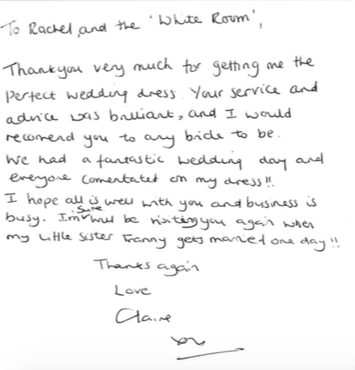 To Rachel, and the 'White Room',
Thankyou very much for getting me the
Perfect wedding dress. Your service and
advice was brilliant, and I would
recomend you to any bride to be.
We had a fantastic wedding day and
everyone comentated on my dress!!
I hope all is well with you and business is
busy. I'm sure will be visiting you again when
my little sister Franny gets married one day!!
Thanks again
Love
Claire